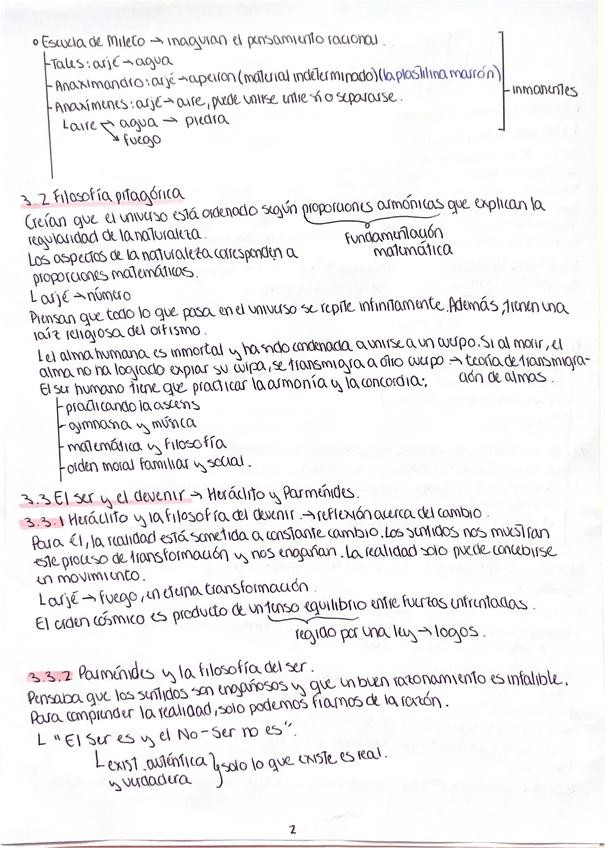 o Escuela de Mileto → inaguran el pensamiento racional.
Tales: arjé → agua
Anaximandro: arjé → apeiron (material indeterminado) (la plastilina marrón)
Anaxímenes: arjé → aire, puede unirse entre sí o separarse.
inmanentes
L aire → agua → piedra
fuego
3.2 Filosofía pitagórica
Creían que el universo está ordenado según proporciones armónicas que explican la
regularidad de la naturaleza.
Fundamentación
matemática
Los aspectos de la naturaleza corresponden a
proporciones matemáticas.
L arjé → número
Piensan que todo lo que pasa en el universo se repite infinitamente. Además, tienen una
raíz religiosa del orfismo.
L el alma humana es inmortal y ha sido condenada a unirse a un cuerpo. Si al morir, el
alma no ha logrado expiar su culpa, se transmigra a otro cuerpo → teoría de transmigra-
ación de almas.
El ser humano tiene que practicar la armonía y la concordia:
practicando la ascesis
gimnasia y música
matemática y filosofía
orden moral familiar y social.
3.3 El ser y el devenir → Heráclito y Parménides.
3.3.1 Heráclito y la filosofía del devenir. → reflexión acerca del cambio.
Para él, la realidad está sometida a constante cambio. Los sentidos nos muestran
este proceso de transformación y nos engañan. La realidad solo puede concebirse
en movimiento.
L arjé → fuego, en eterna transformación.
El orden cósmico es producto de un tenso equilibrio entre fuerzas enfrentadas.
regido por una ley → logos.
3.3.2 Parménides y la filosofía del ser.
Pensaba que los sentidos son engañosos y que un buen razonamiento es infalible.
Para comprender la realidad, solo podemos fiarnos de la razón.
L "El Ser es y el No-Ser no es".
L exist. auténtica
y verdadera
solo lo que existe es real.
2